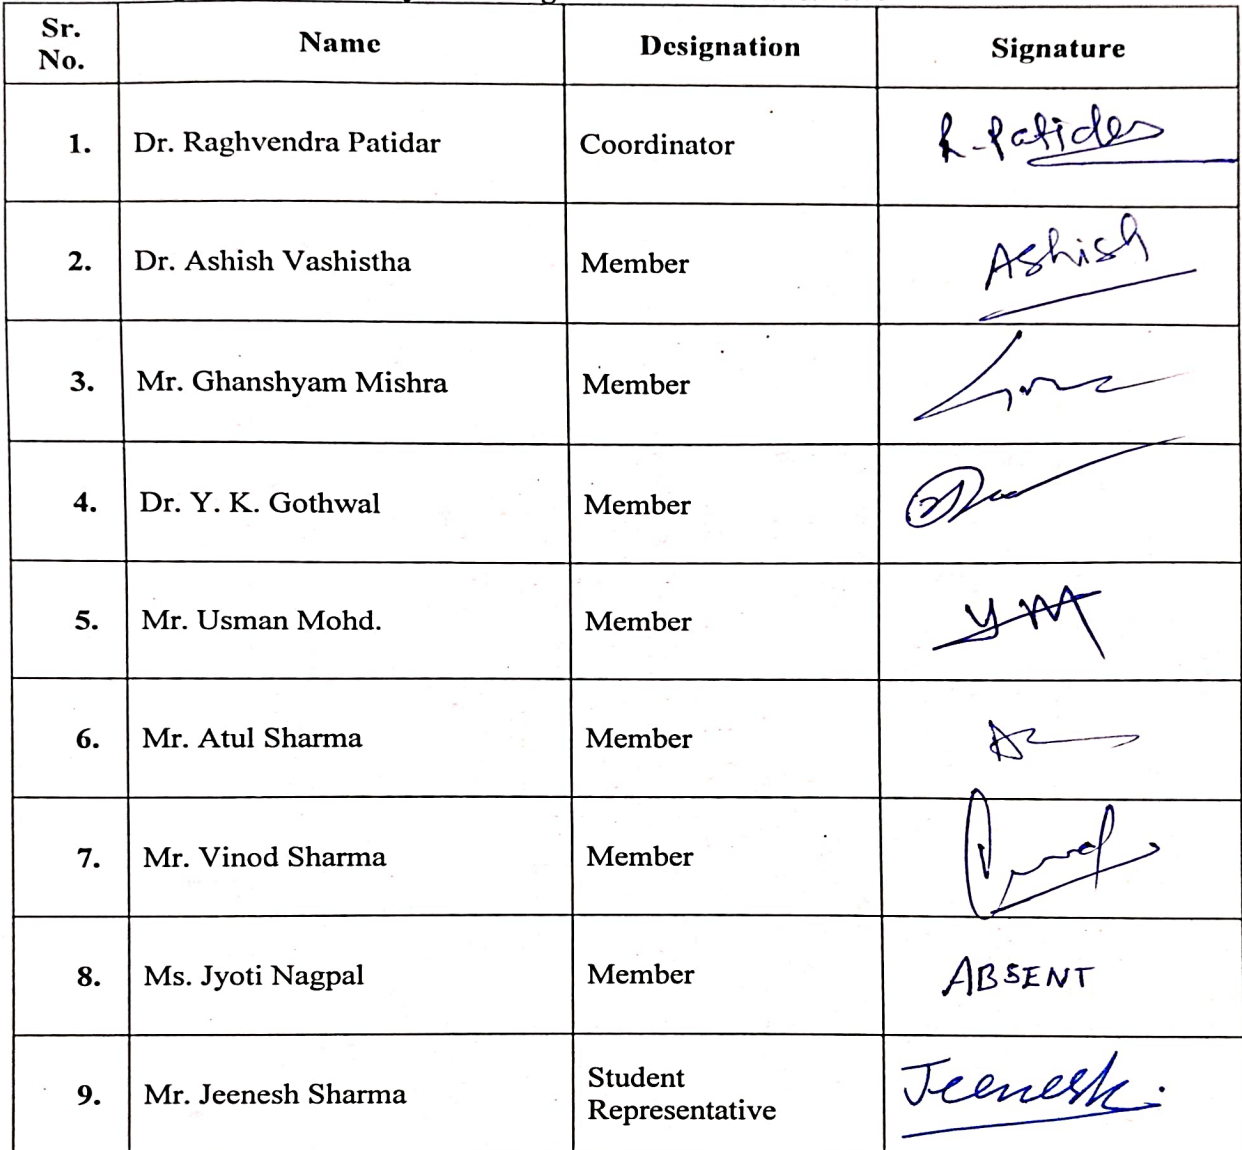 Sr. No. Name Designation Signature
1. Dr. Raghvendra Patidar Coordinator R-Patidar
2. Dr. Ashish Vashistha Member Ashish
3. Mr. Ghanshyam Mishra Member
4. Dr. Y. K. Gothwal Member
5. Mr. Usman Mohd. Member
6. Mr. Atul Sharma Member
7. Mr. Vinod Sharma Member
8. Ms. Jyoti Nagpal Member ABSENT
9. Mr. Jeenesh Sharma Student Representative Jeenesh